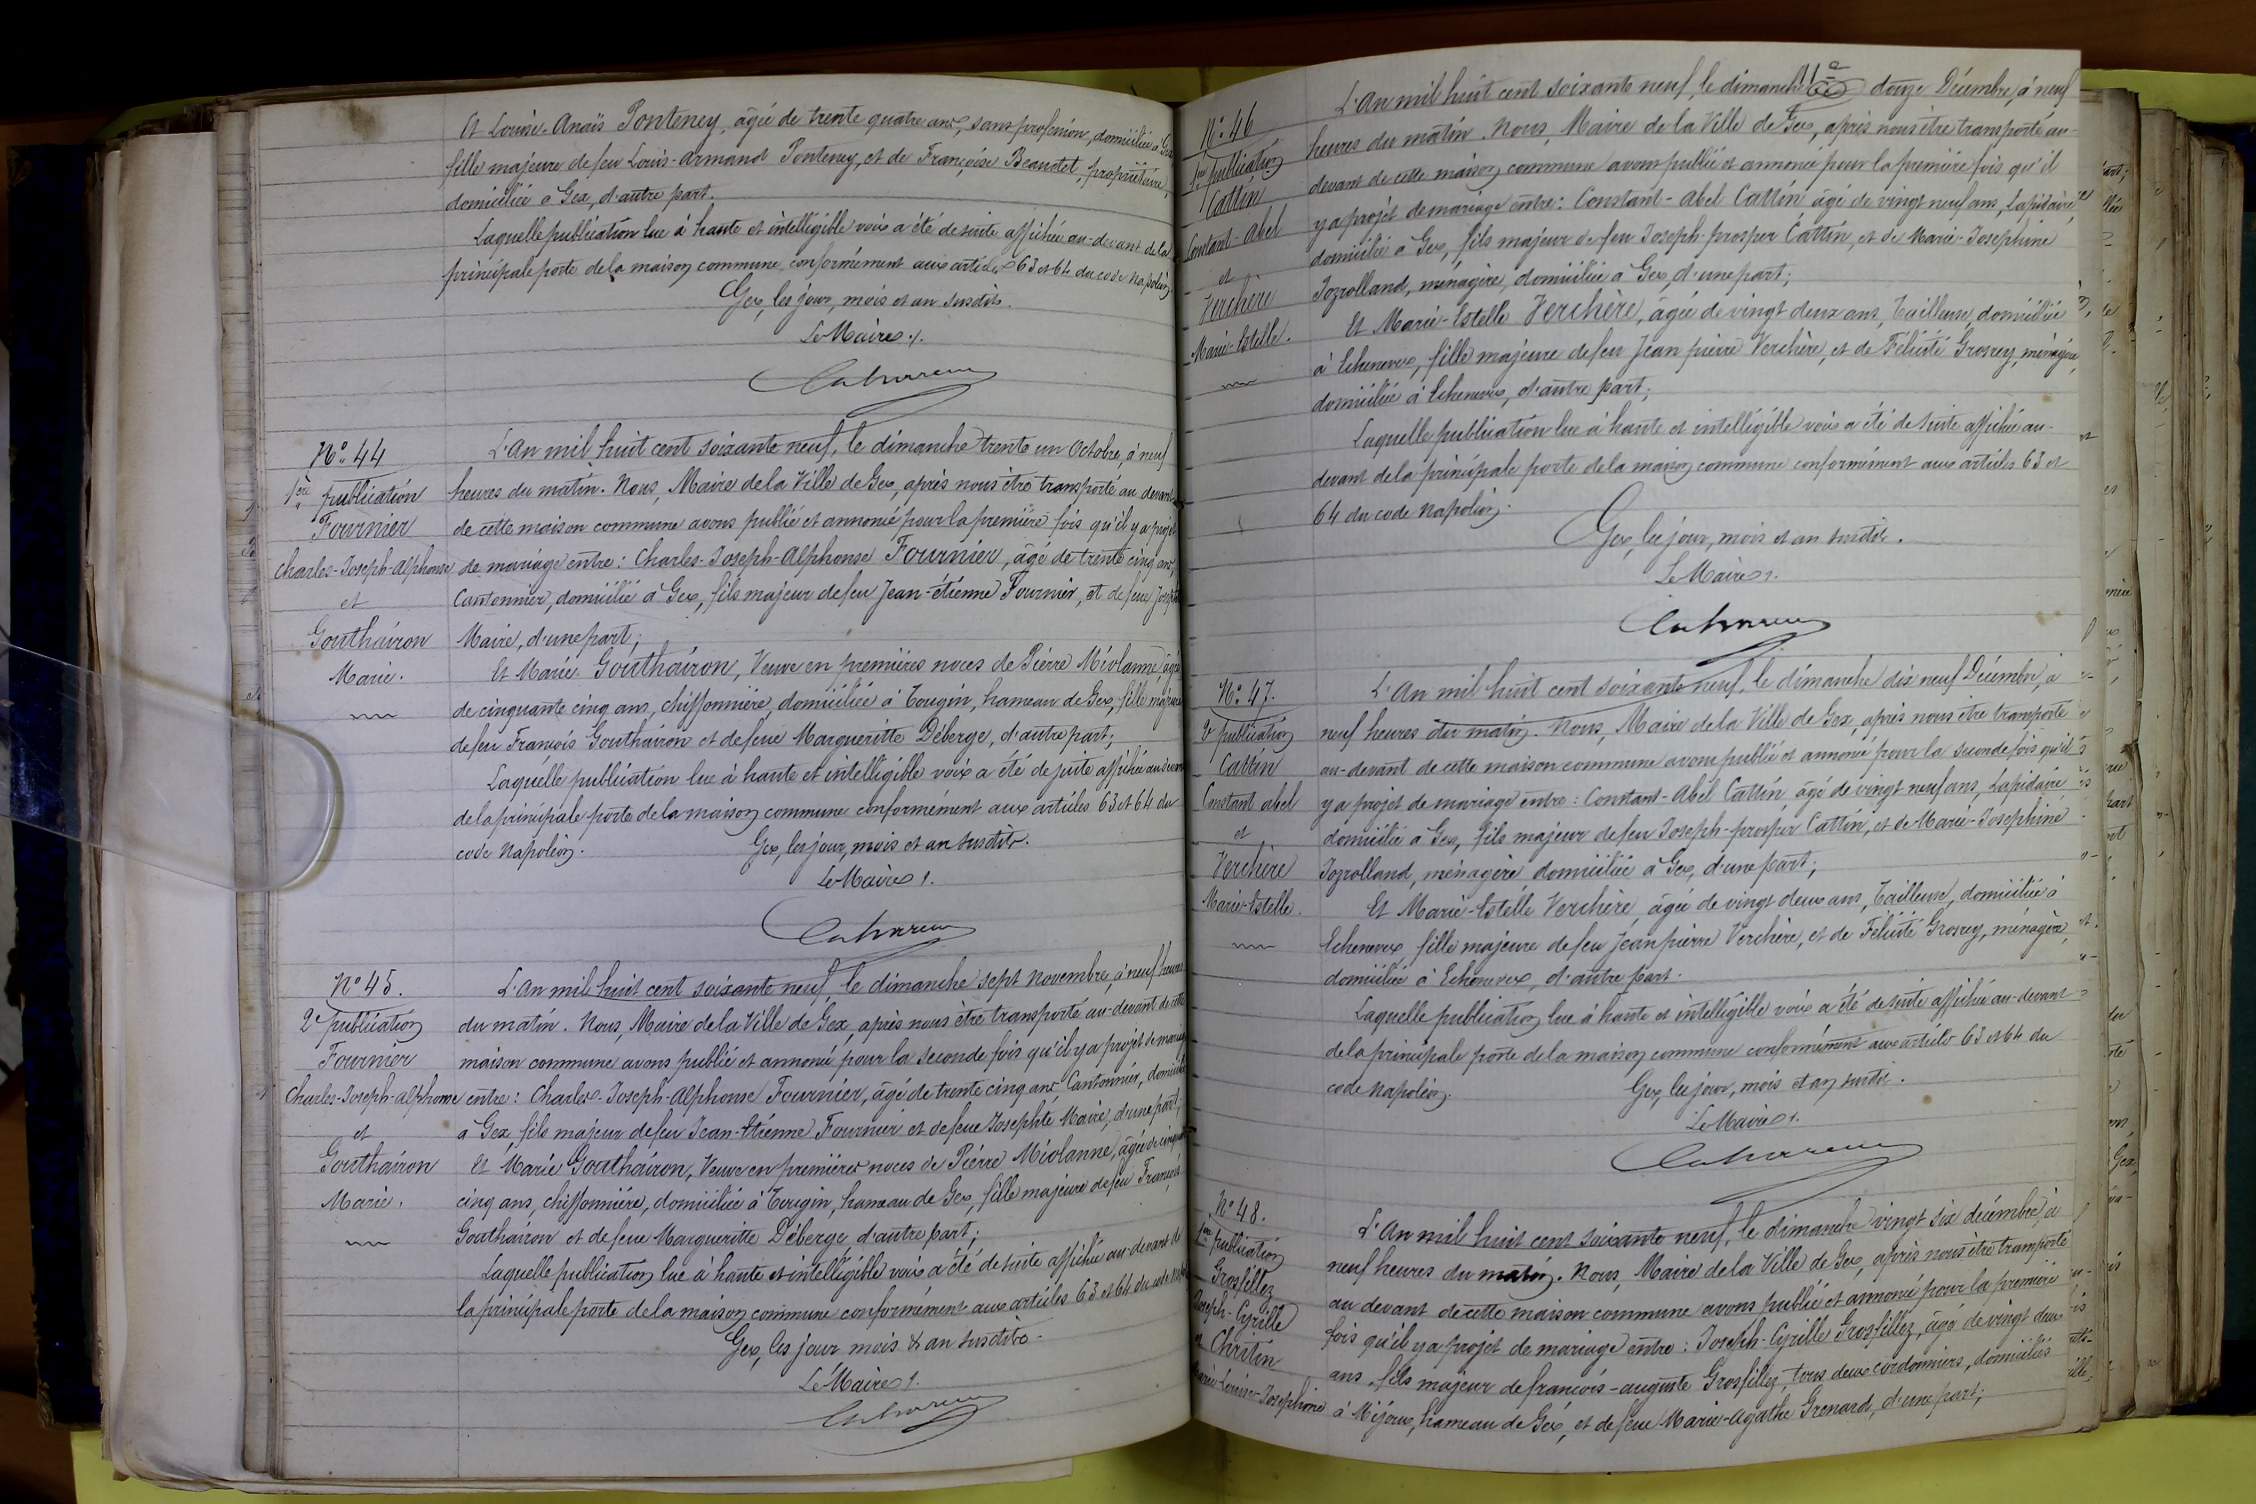 Et Louise-Anaïs Ponteney, âgée de trente quatre ans, sans profession, domiciliée à Gex
fille majeure de feu Louis-Armand Ponteney, et de Françoise Beaudet, propriétaire,
domiciliée à Gex, d'autre part.
Laquelle publication lue à haute et intelligible voix a été de suite affichée au-devant de la
principale porte de la maison commune conformément aux articles 63 et 64 du code Napoléon.
Gex, les jour, mois et an susdits.
Le Maire.
N° 44
1ère publication
Fournier
Charles-Joseph-Alphonse
et
Gouthairon
Marie.
L'An mil huit cent soixante neuf, le dimanche trente un Octobre, à neuf
heures du matin. Nous, Maire de la Ville de Gex, après nous être transporté au devant
de cette maison commune avons publié et annoncé pour la première fois qu'il y a projet
de mariage entre: Charles-Joseph-Alphonse Fournier, âgé de trente cinq ans,
Cantonnier, domicilié à Gex, fils majeur de feu Jean-étienne Fournier, et de feue
Maire, d'une part;
Et Marie Gouthairon, Veuve en premières noces de Pierre Miolanne, âgée
de cinquante cinq ans, chiffonnière, domiciliée à Tougin, hameau de Gex, fille majeure
de feu François Gouthairon et de feue Margueritte Déberge, d'autre part;
Laquelle publication lue à haute et intelligible voix a été de suite affichée au devant
de la principale porte de la maison commune conformément aux articles 63 et 64 du
code Napoléon.
Gex, les jour, mois et an susdits.
Le Maire.
N° 45.
2e publication
Fournier
Charles-Joseph-Alphonse
et
Gouthairon
Marie.
L'An mil huit cent soixante neuf, le dimanche sept Novembre, à neuf heures
du matin. Nous, Maire de la Ville de Gex, après nous être transporté au-devant de cette
maison commune avons publié et annoncé pour la seconde fois qu'il y a projet de mariage
entre: Charles-Joseph-Alphonse Fournier, âgé de trente cinq ans Cantonnier, domicilié
à Gex, fils majeur de feu Jean-Etienne Fournier et de feue Josephte Maire, d'une part;
Et Marie Gouthairon, Veuve en premières noces de Pierre Miolanne, âgée de cinquante
cinq ans, chiffonnière, domiciliée à Tougin, hameau de Gex, fille majeure de feu François
Gouthairon et de feue Margueritte Déberge d'autre part;
Laquelle publication lue à haute et intelligible voix a été de suite affichée au-devant de
la principale porte de la maison commune conformément aux articles 63 et 64 du code
Gex, les jour mois & an susdits.
Le Maire.
N° 46
1re publication
Cattin
Constant-Abel
et
Verchère
Marie-Estelle.
L'An mil huit cent soixante neuf, le dimanche douze Décembre, à neuf
heures du matin. Nous, Maire de la Ville de Gex, après nous être transporté au-
devant de cette maison commune avons publié et annoncé pour la première fois qu'il
y a projet de mariage entre: Constant-Abel Cattin âgé de vingt neuf ans, Lapidaire,
domicilié à Gex, fils majeur de feu Joseph-prosper Cattin, et de Marie-Josephine
Jozrolland, ménagère, domiciliée à Gex, d'une part;
Et Marie-Estelle Verchère, âgée de vingt deux ans, Tailleuse, domiciliée
à Echenevex, fille majeure de feu Jean pierre Verchère, et de Félicité Grosrey, ménagère,
domiciliée à Echenevex, d'autre part;
Laquelle publication lue à haute et intelligible voix a été de suite affichée au-
devant de la principale porte de la maison commune conformément aux articles 63 et
64 du code Napoléon.
Gex, les jour, mois et an susdits.
Le Maire.
N° 47.
2e publication
Cattin
Constant abel
et
Verchère
Marie-Estelle.
L'An mil huit cent soixante neuf, le dimanche dix neuf Décembre, à
neuf heures du matin. Nous, Maire de la Ville de Gex, après nous être transporté
au-devant de cette maison commune avons publié et annoncé pour la seconde fois qu'il
y a projet de mariage entre: Constant-Abel Cattin âgé de vingt neuf ans, Lapidaire
domicilié à Gex, fils majeur de feu Joseph-prosper Cattin, et de Marie-Josephine
Jozrolland, ménagère domiciliée à Gex, d'une part;
Et Marie-Estelle Verchère, âgée de vingt deux ans, Tailleuse, domiciliée à
Echenevex, fille majeure de feu Jean pierre Verchère, et de Félicité Grosrey, ménagère,
domiciliée à Echenevex, d'autre part.
Laquelle publication lue à haute et intelligible voix a été de suite affichée au-devant
de la principale porte de la maison commune conformément aux articles 63 et 64 du
code Napoléon.
Gex, les jour, mois et an susdits.
Le Maire.
N° 48.
1re publication
Grosfillez
Joseph-Cyrille
et Christin
Marie-Louise-Josephine
L'An mil huit cent soixante neuf, le dimanche vingt six décembre, à
neuf heures du matin. Nous, Maire de la Ville de Gex, après nous être transporté
au devant de cette maison commune avons publié et annoncé pour la première
fois qu'il y a projet de mariage entre: Joseph-Cyrille Grosfillez, âgé de vingt deux
ans, fils majeur de françois-auguste Grosfillez, tous deux cordonniers, domiciliés
à Mijoux, hameau de Gex, et de feue Marie-Agathe Grenard, d'une part;